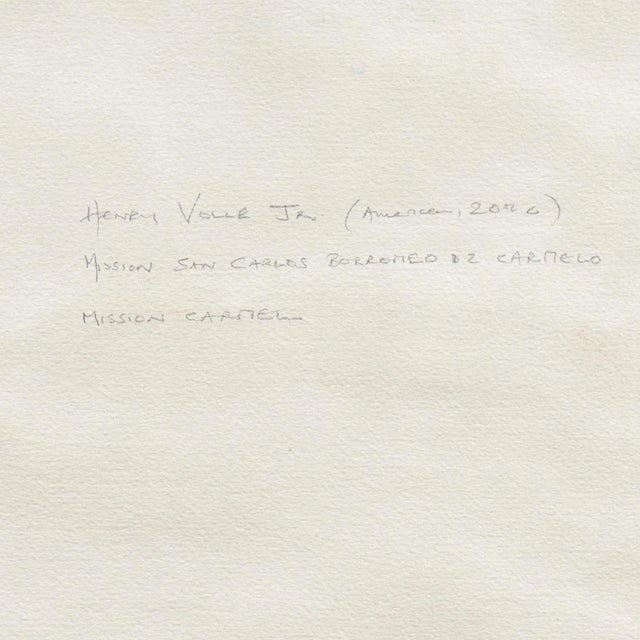 Henry Volle Jr. (American, 20th c)
Mission San Carlos Borromeo de Carmelo
Mission Carmel